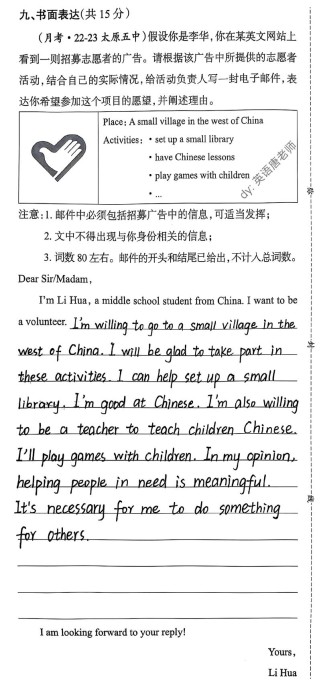 九、书面表达(共15分)
(月考·22-23太原五中)假设你是李华,你在某英文网站上
看到一则招募志愿者的广告。请根据该广告中所提供的志愿者
活动,结合自己的实际情况,给活动负责人写一封电子邮件,表
达你希望参加这个项目的愿望,并阐述理由。
Place: A small village in the west of China
Activities: · set up a small library
· have Chinese lessons
· play games with children
· ...
dy: 英语唐老师
注意:1. 邮件中必须包括招募广告中的信息,可适当发挥;
2. 文中不得出现与你身份相关的信息;
3. 词数80左右。邮件的开头和结尾已给出,不计入总词数。
Dear Sir/Madam,
I'm Li Hua, a middle school student from China. I want to be
a volunteer. I'm willing to go to a small village in the
west of China. I will be glad to take part in
these activities. I can help set up a small
library. I'm good at Chinese. I'm also willing
to be a teacher to teach children Chinese.
I'll play games with children. In my opinion,
helping people in need is meaningful.
It's necessary for me to do something
for others.
I am looking forward to your reply!
Yours,
Li Hua